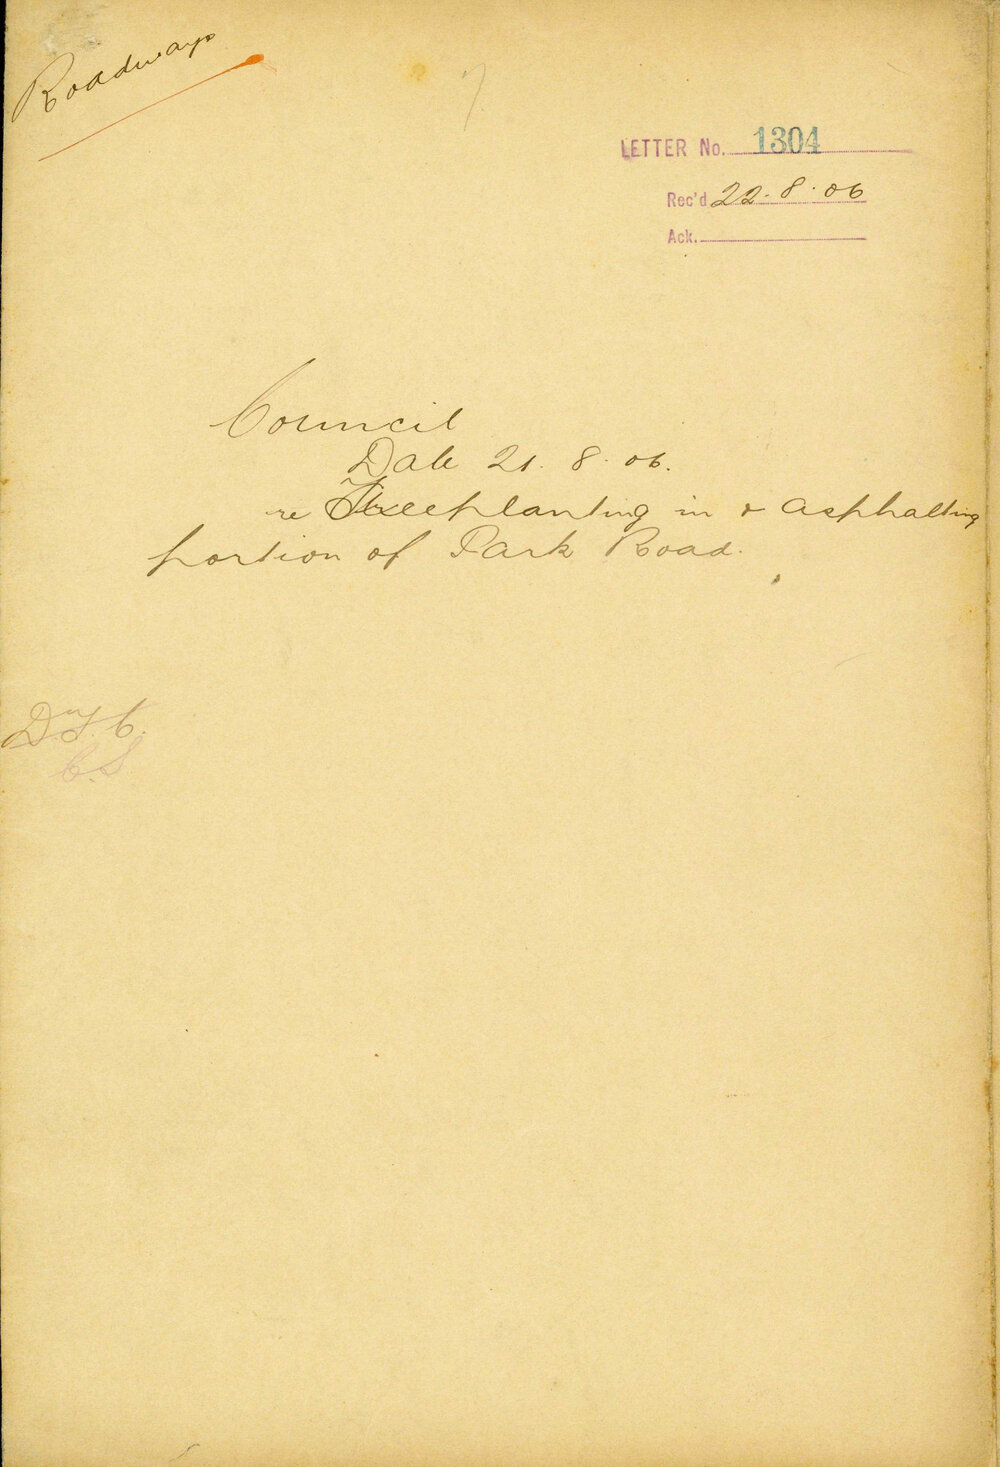 Roadways
LETTER No. 1304
Rec'd 22.8.06
Ack.
Council
Date 21.8.06.
re Treeplanting in & asphalting
portion of Park Road.
C.S.